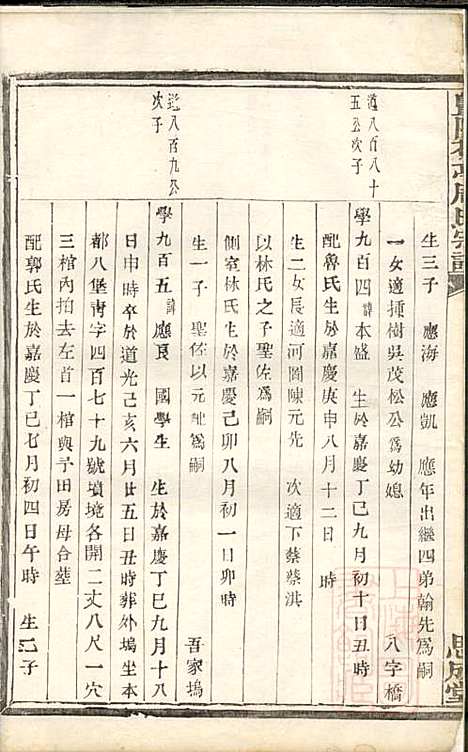 生三子　應海　應凱　應年出繼四弟翰先爲嗣
一女適揷樹吳茂松公爲幼媳　八字橋
道八百八十五公次子
學九百四諱本盛　生於嘉慶丁巳九月初十日丑時
配魯氏生於嘉慶庚申八月十二日　時
生二女長適河圖陳元先　次適下蔡蔡淇
以林氏之子聖佐爲嗣
側室林氏生於嘉慶己卯八月初一日卯時
生一子　聖佐以元配爲嗣　吾家塢
道八百九公次子
學九百五諱應良　國學生　生於嘉慶丁巳九月十八
日申時卒於道光己亥六月廿五日丑時葬外塢坐本
都八堡靑字四百七十九號墳境各開二丈八尺一穴
三棺內拍去左首一棺與予田房母合塟
配郭氏生於嘉慶丁巳七月初四日午時　生二子
周氏宗譜
思成堂